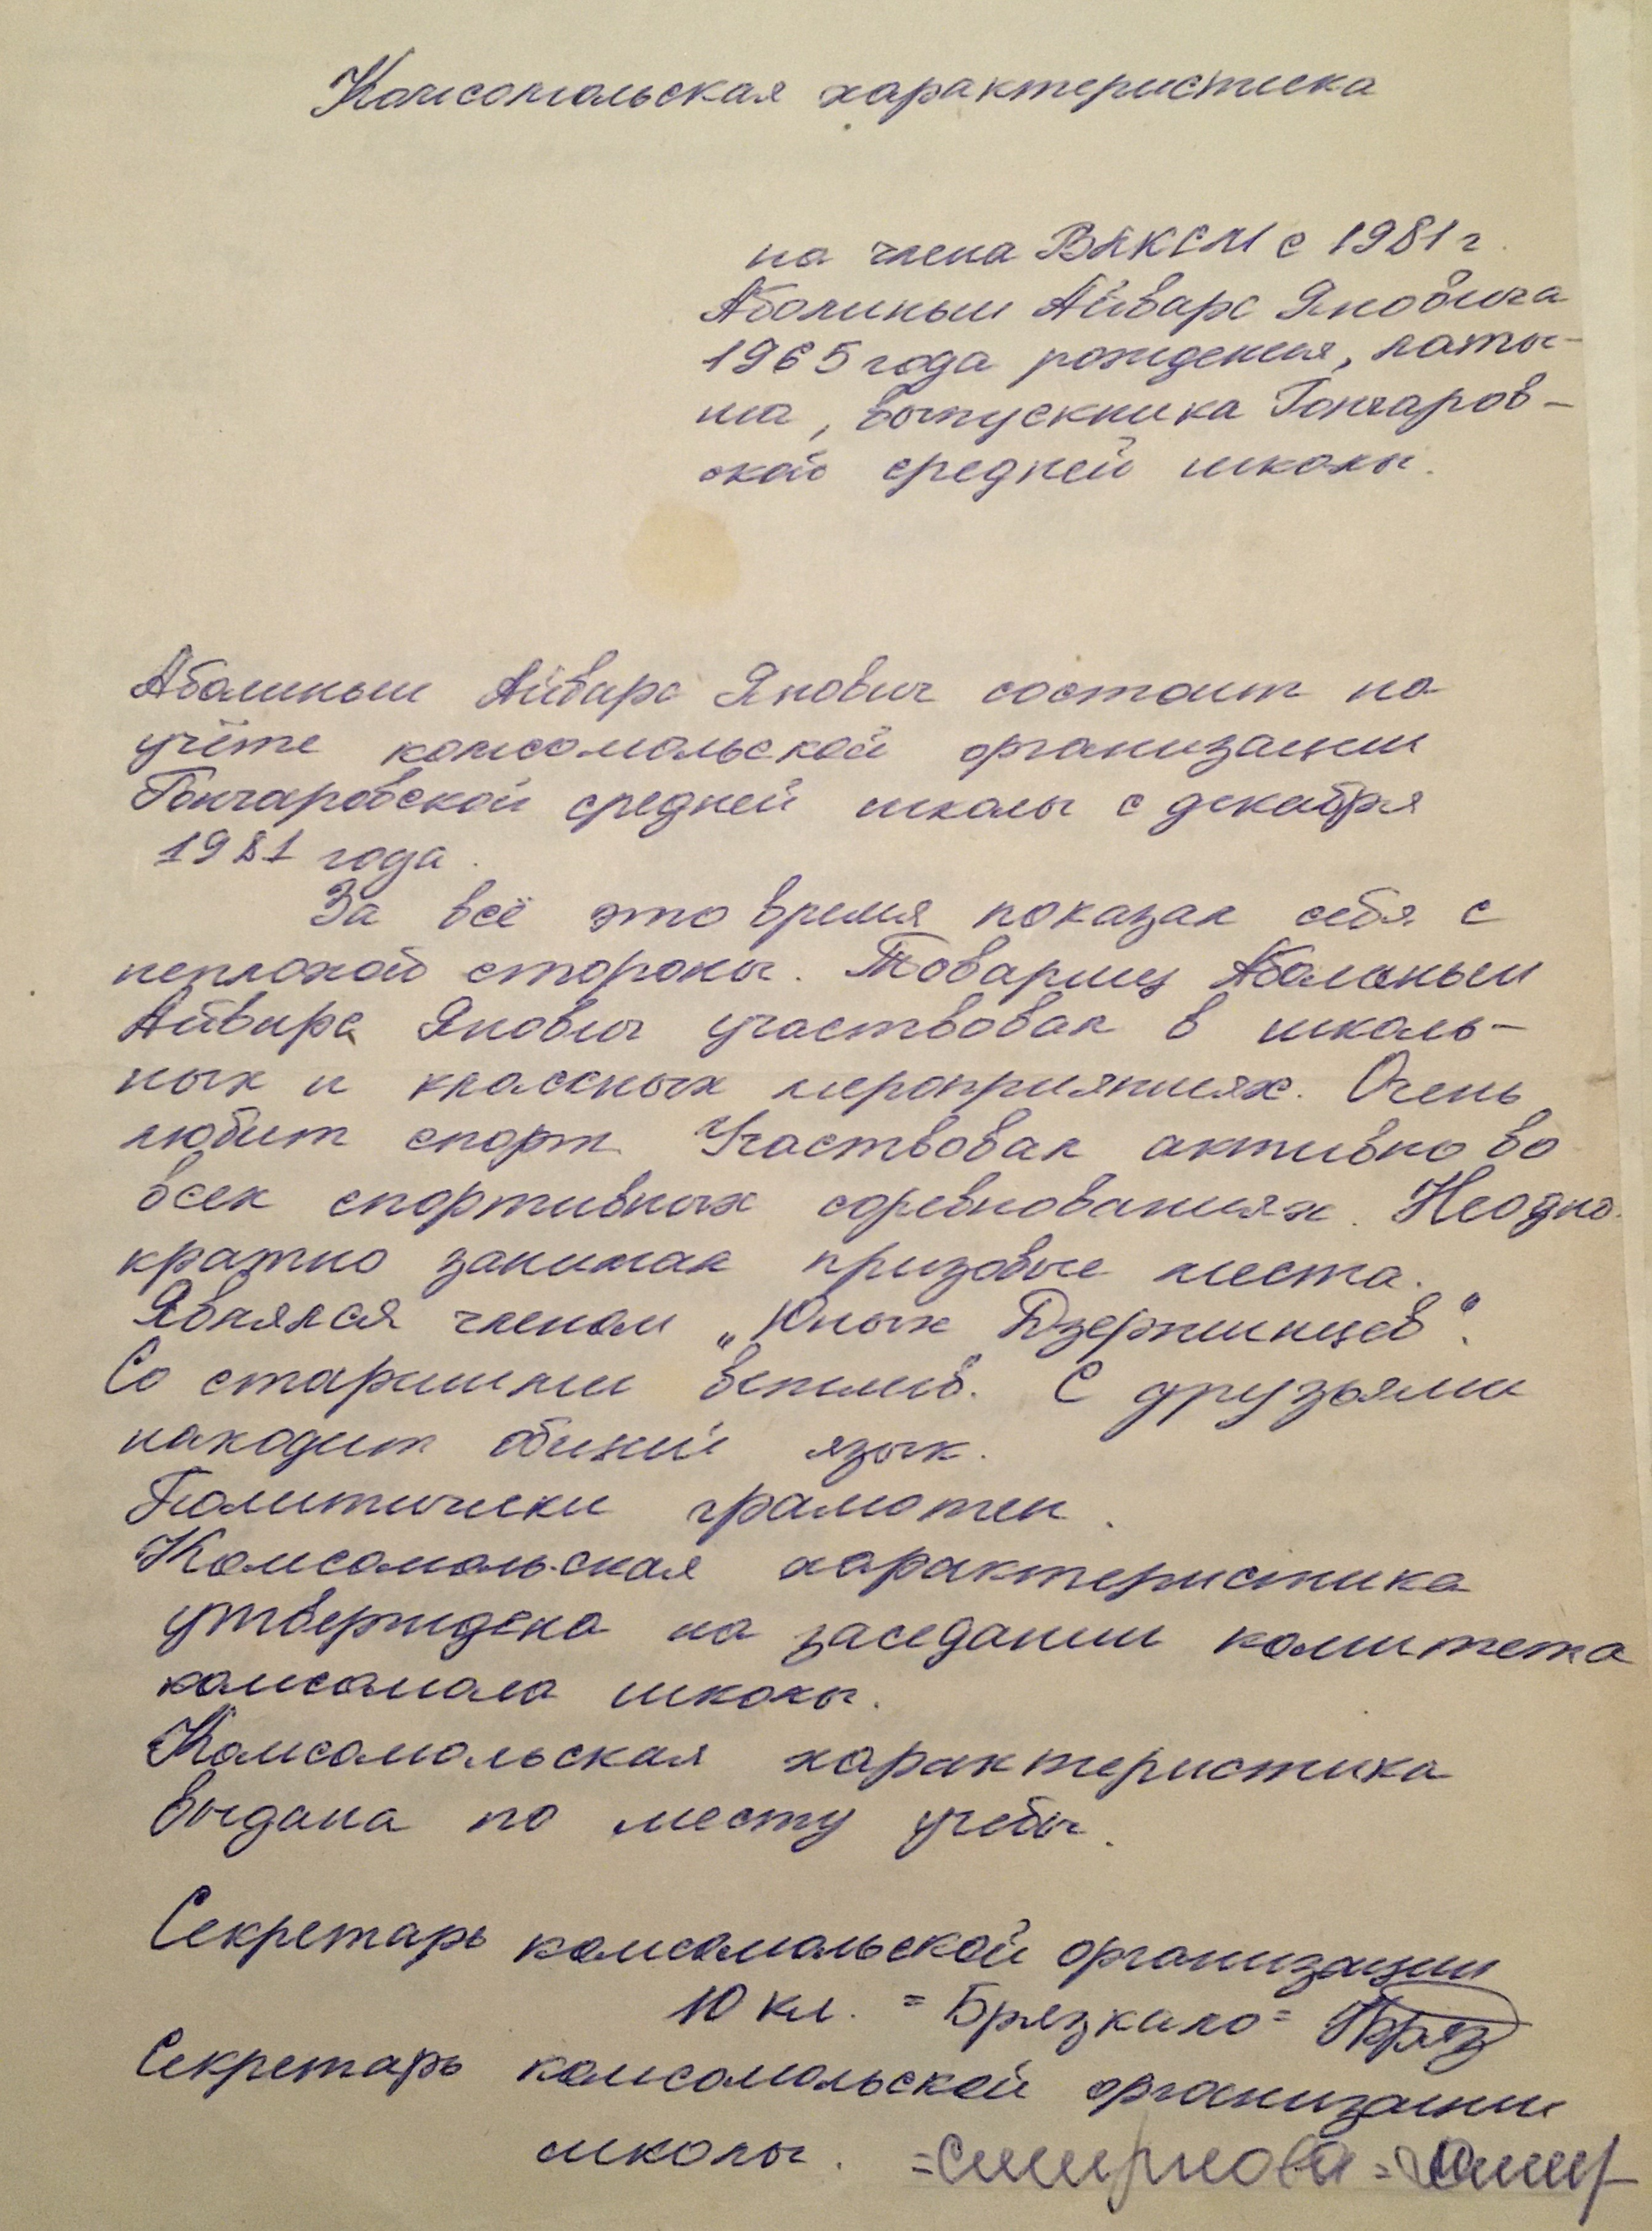 Комсомольская характеристика
на члена ВЛКСМ с 1981 г.
Аболиньш Айварс Яновича
1965 года рождения, латы-
ша, выпускника Гончаров-
ской средней школы.
Аболиньш Айварс Янович состоит на
учёте комсомольской организации
Гончаровской средней школы с декабря
1981 года.
За всё это время показал себя с
неплохой стороны. Товарищ Аболиньш
Айварс Янович участвовал в школь-
ных и классных мероприятиях. Очень
любит спорт. Участвовал активно во
всех спортивных соревнованиях. Неодно-
кратно занимал призовые места.
Являлся членом „Юных Дзержинцев".
Со старшими вежлив. С друзьями
находит общий язык.
Политически грамотен.
Комсомольская характеристика
утверждена на заседании комитета
комсомола школы.
Комсомольская характеристика
выдана по месту учебы.
Секретарь комсомольской организации
10 кл. = Брязкало = Бряз
Секретарь комсомольской организации
школы. = Смирнова =